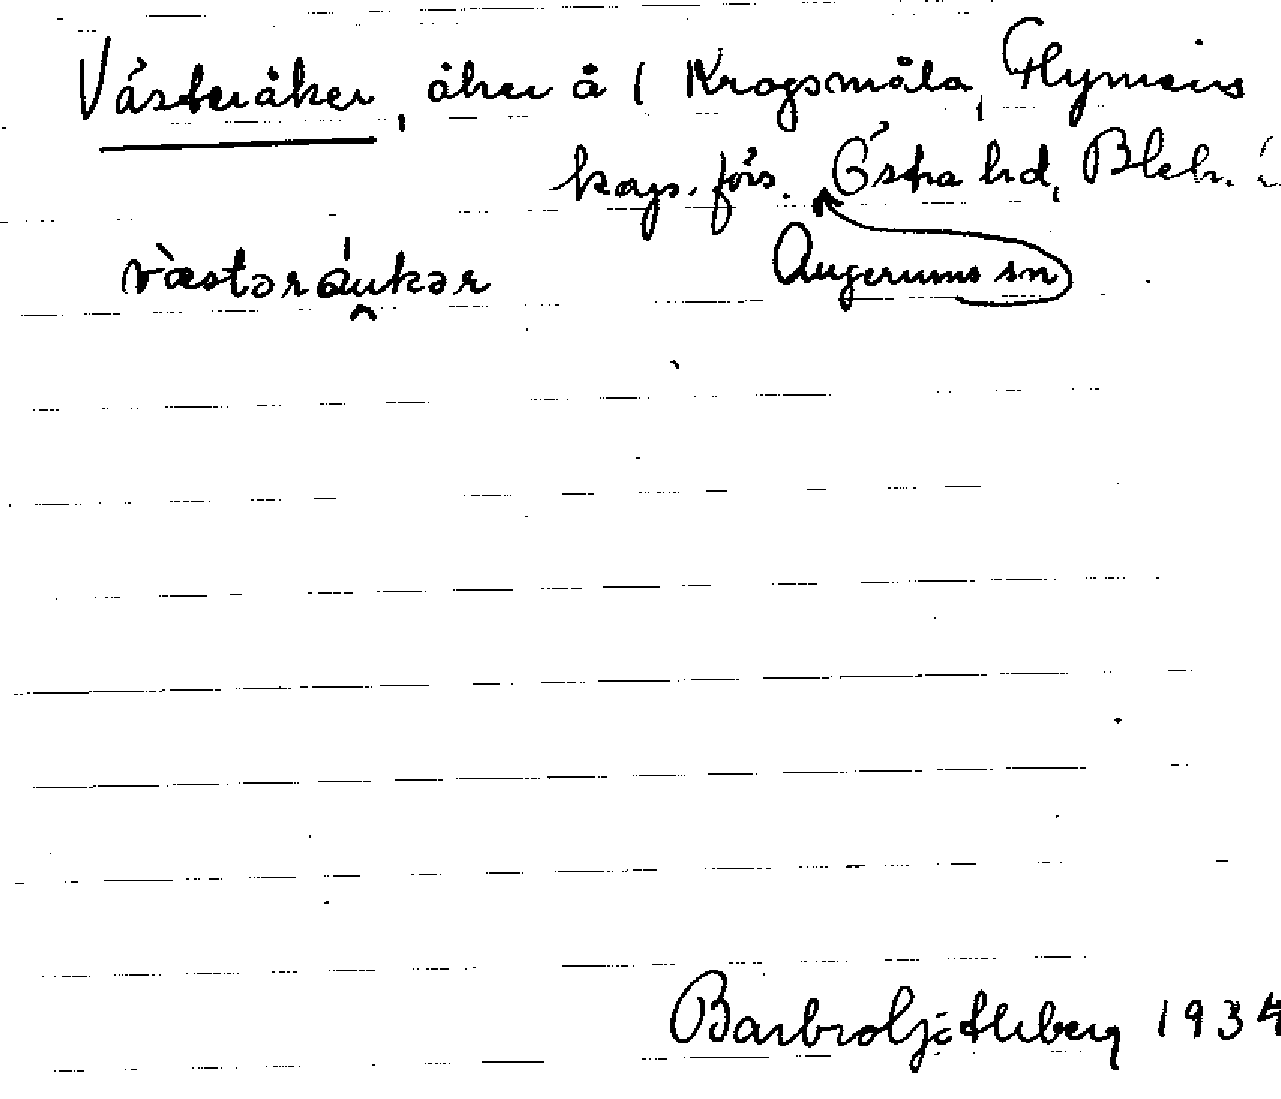 Västeråker, åker å 1 Krogsmåla, Flymens
kaps. förs. Östra hd, Blek.
Augerums sn
vàstəráukər
Barbro Ljéthberg 1934